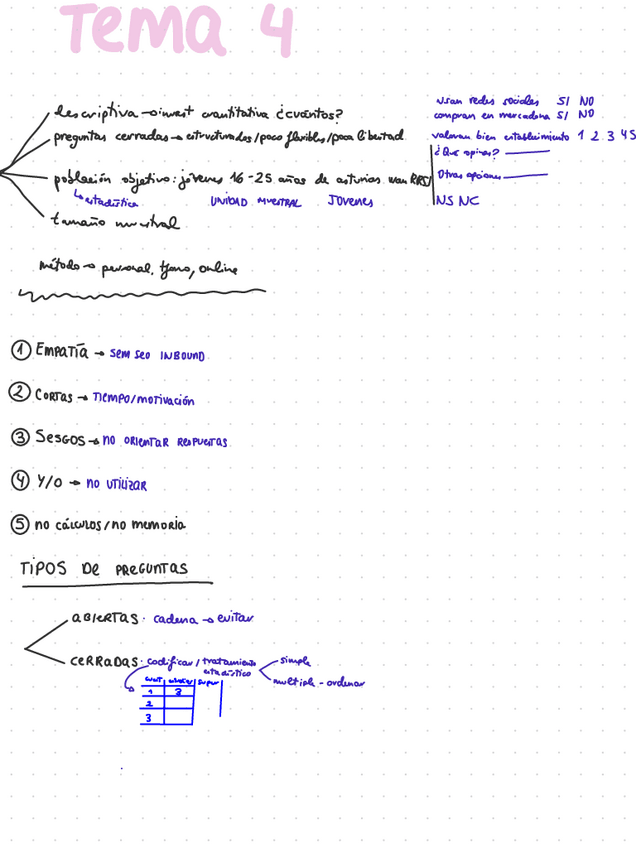 Tema 4
descriptiva → invest cuantitativa ¿cuántos?
preguntas cerradas → estructuradas/poco flexibles/poca libertad
población objetivo: jóvenes 16-25 años de asturias usan RRSS
↳ estadística UNIDAD MUESTRAL JOVENES
tamaño muestral
usan redes sociales SI NO
compran en mercadona SI NO
valoran bien establecimiento 1 2 3 4 5
¿Qué opinas?
Otras opciones
NS NC
método → personal, tfono, online
① EMPATÍA → SEM SEO INBOUND
② CORTAS → TIEMPO/MOTIVACIÓN
③ SESGOS → NO ORIENTAR RESPUESTAS
④ Y/O → NO UTILIZAR
⑤ no cálculos/no memoria
TIPOS DE PREGUNTAS
ABIERTAS · cadena → evitar
CERRADAS · codificar / tratamiento estadístico
simple
multiple - ordenar
1 3
2
3